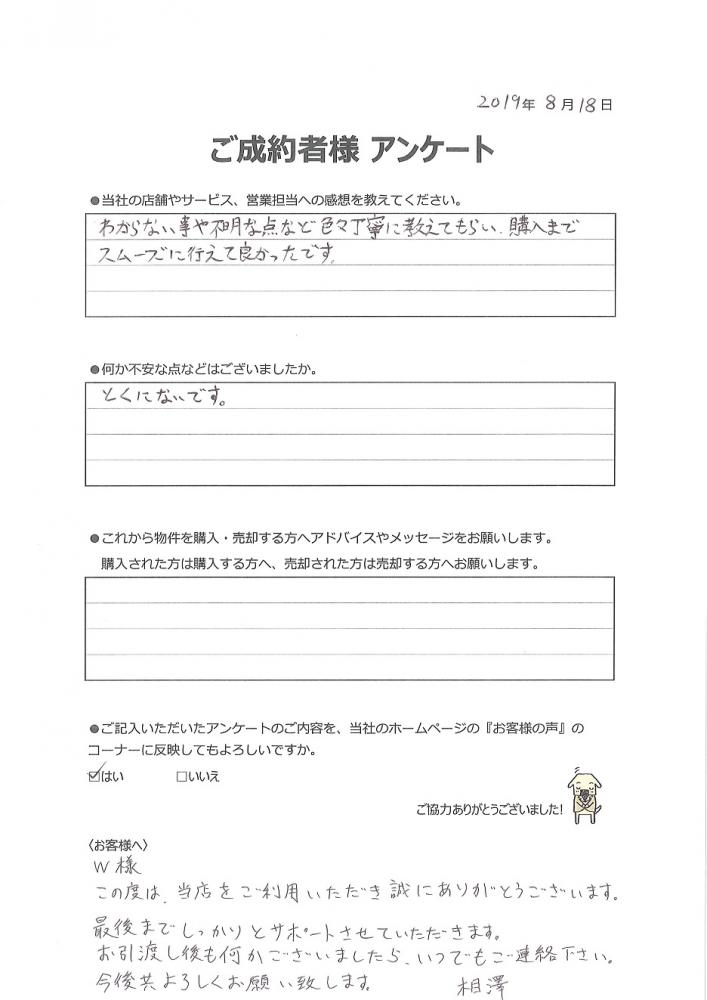 2019年 8月18日
ご成約者様 アンケート
●当社の店舗やサービス、営業担当への感想を教えてください。
わからない事や不明な点など色々丁寧に教えてもらい、購入まで
スムーズに行えて良かったです。
●何か不安な点などはございましたか。
とくにないです。
●これから物件を購入・売却する方へアドバイスやメッセージをお願いします。
購入された方は購入する方へ、売却された方は売却する方へお願いします。
●ご記入いただいたアンケートのご内容を、当社のホームページの『お客様の声』の
コーナーに反映してもよろしいですか。
☑はい □いいえ
ご協力ありがとうございました!
〈お客様へ〉
W様
この度は、当店をご利用いただき誠にありがとうございます。
最後までしっかりとサポートさせていただきます。
お引渡し後も何かございましたら、いつでもご連絡下さい。
今後共よろしくお願い致します。 相澤